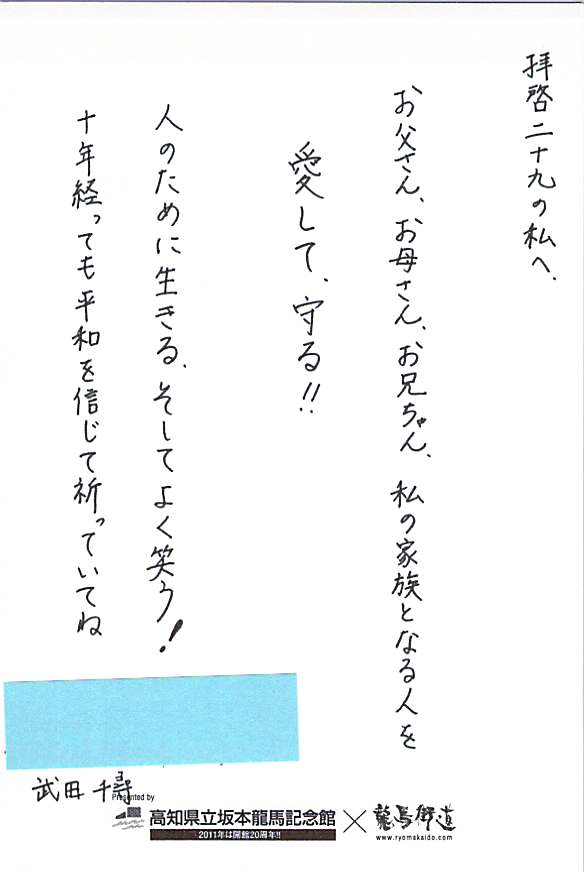 拝啓二十九の私へ、
お父さん、お母さん、お兄ちゃん、私の家族となる人を
愛して、守る!!
人のために生きる、そしてよく笑う!
十年経っても平和を信じて祈っていてね
武田千尋
Presented by
高知県立坂本龍馬記念館
2011年は開館20周年!!
×
龍馬街道
www.ryomakaido.com